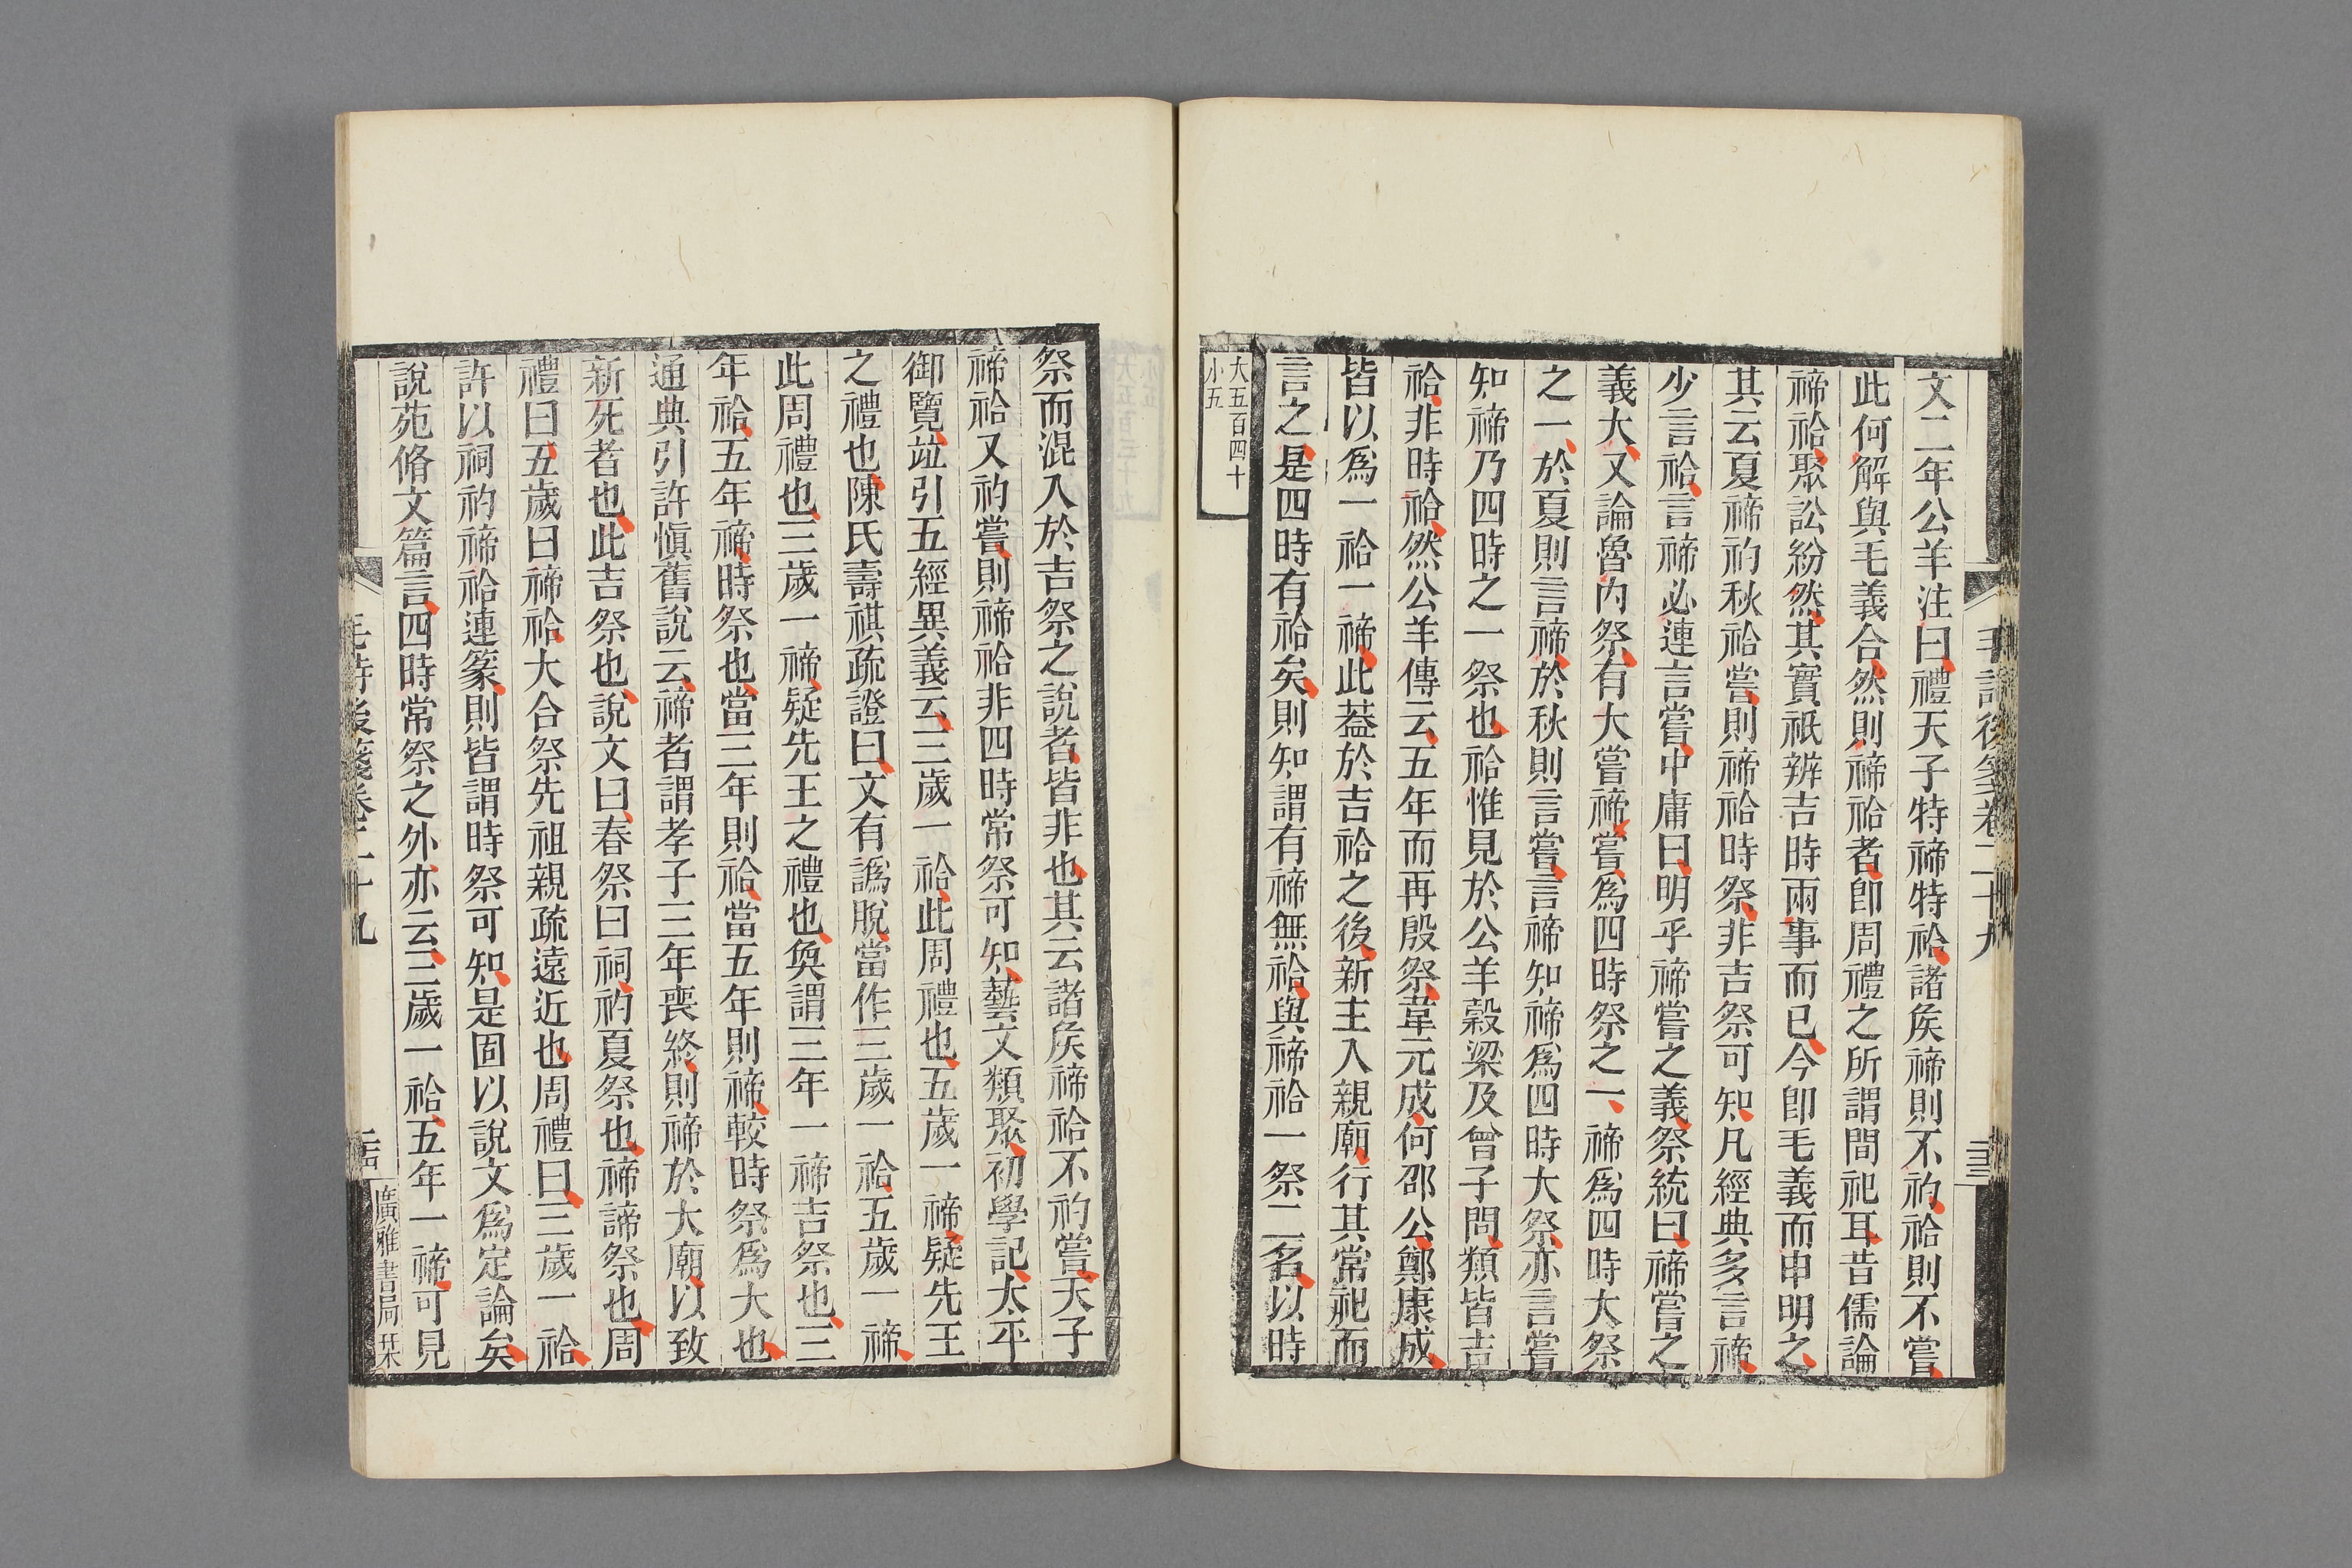 毛詩後箋卷二十九
三
文二年公羊注曰禮天子特禘特祫諸矦禘則不礿祫則不嘗
此何解與毛義合然則禘祫者卽周禮之所謂間祀耳昔儒論
禘祫聚訟紛然其實祇辨吉時兩事而已今卽毛義而申明之
其云夏禘礿秋祫嘗則禘祫時祭非吉祭可知凡經典多言禘
少言祫言禘必連言嘗中庸曰明乎禘嘗之義祭統曰禘嘗之
義大又論魯內祭有大嘗禘嘗爲四時祭之一禘爲四時大祭
之一於夏則言禘於秋則言嘗言禘知禘爲四時大祭亦言嘗
知禘乃四時之一祭也祫惟見於公羊穀梁及曾子問類皆吉
祫非時祫然公羊傳云五年而再殷祭韋元成何邵公鄭康成
皆以爲一祫一禘此葢於吉祫之後新主入親廟行其常祀而
言之是四時有祫矣則知謂有禘無祫與禘祫一祭二名以時
大五百四十
小五
祭而混入於吉祭之說者皆非也其云諸矦禘祫不礿嘗天子
禘祫又礿嘗則禘祫非四時常祭可知藝文類聚初學記太平
御覽竝引五經異義云三歲一祫此周禮也五歲一禘疑先王
之禮也陳氏壽祺疏證曰文有譌脫當作三歲一祫五歲一禘
此周禮也三歲一禘疑先王之禮也奐謂三年一禘吉祭也三
年祫五年禘時祭也當三年則祫當五年則禘較時祭爲大也
通典引許愼舊說云禘者謂孝子三年喪終則禘於大廟以致
新死者也此吉祭也說文曰春祭曰祠礿夏祭也禘諦祭也周
禮曰五歲曰禘祫大合祭先祖親疏遠近也周禮曰三歲一祫
許以祠礿禘祫連篆則皆謂時祭可知是固以說文爲定論矣
說苑脩文篇言四時常祭之外亦云三歲一祫五年一禘可見
毛詩後箋卷二十九
廣雅書局栞